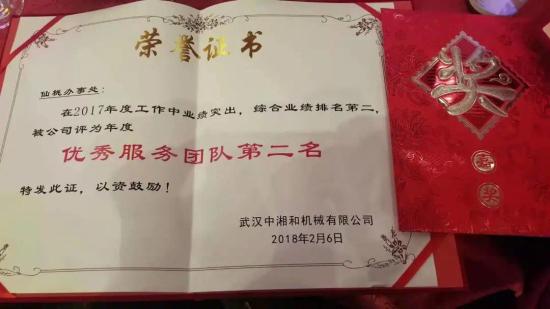 荣誉证书
仙桃办事处：
在2017年度工作中业绩突出，综合业绩排名第二，
被公司评为年度
优秀服务团队第二名
特发此证，以资鼓励！
武汉中湘和机械有限公司
2018年2月6日
奖